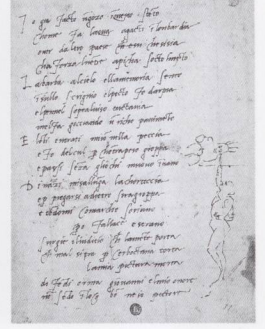 I o gia facto ungozo somquesto stento
chome fa lacqua agacti ilombardia
over daltro paese che essi chesisia
cha forza luentre apicha socto luměto
La barba alcielo ellamemoria sento
isullo scrignio elpecto fo darpia
elpennel sopraluiso tuctavia
melfa gocciando u richo pauimento
E lobi entrati miso nella peccia
e fo delcul p chotrapeso groppa
e passi seza gliochi muouo inuano
Dinazi misallunga lachorteccia
e p piegarsi adietro siragroppa
e tendomi comarcho soriano
po fallace e strano
surgie iliuditio ch lamente porta
ch mal si p cerboctana torta
lamia pictura morta
di fedi orma giouanni elmio onore
no sedo ilog bo ne io pictore